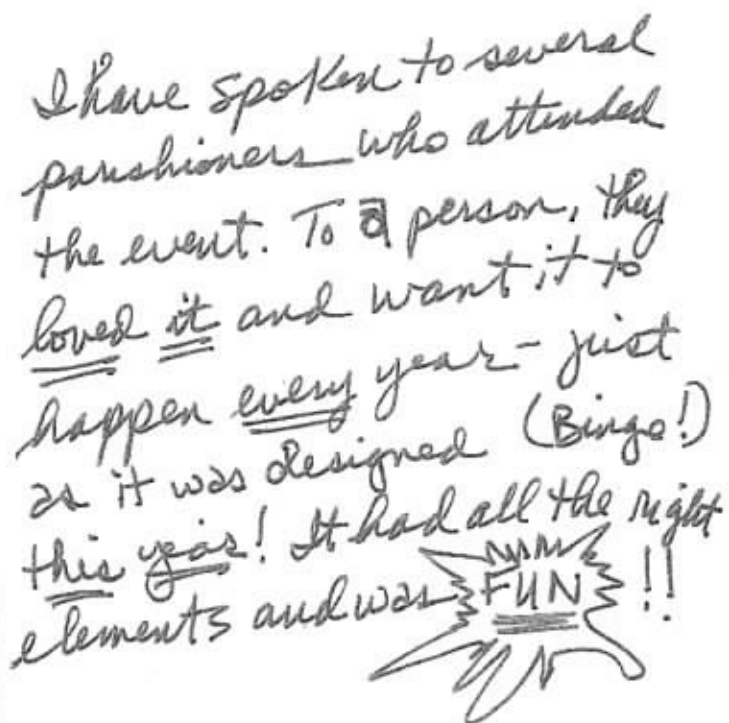 I have spoken to several
parishioners who attended
the event. To a person, they
loved it and want it to
happen every year - just
as it was designed (Bingo!)
this year! It had all the right
elements and was FUN!!